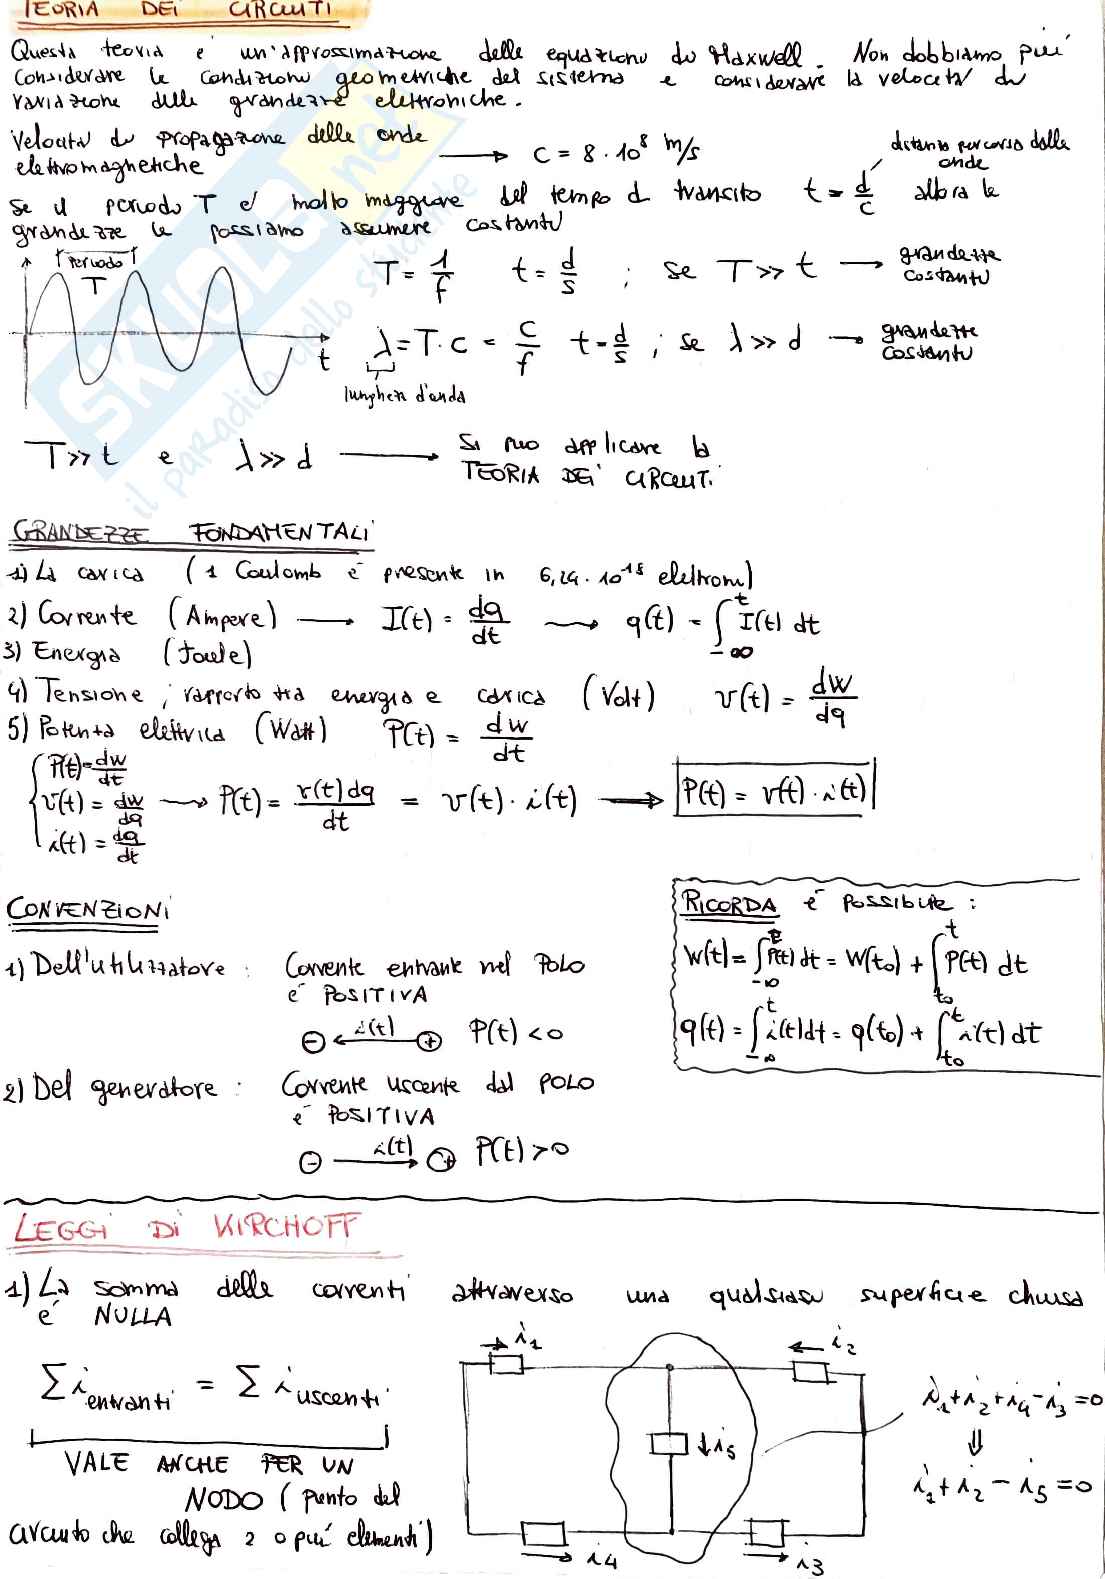 TEORIA DEI CIRCUITI
Questa teoria e' un'approssimazione delle equazioni di Maxwell. Non dobbiamo più
considerare le condizioni geometriche del sistema e considerare la velocità di
variazione delle grandezze elettroniche.
Velocità di propagazione delle onde
elettromagnetiche → C = 8 · 10⁸ m/s
distanza percorsa dalle
onde
Se il periodo T e' molto maggiore del tempo di transito t = d/c allora le
grandezze le possiamo assumere costanti
Periodo
T
t
T = 1/f t = d/s ; se T >> t → grandezze
costanti
λ = T · C = C/f t = d/s ; se λ >> d → grandezze
costanti
lunghezza d'onda
T >> t e λ >> d → Si può applicare la
TEORIA DEI CIRCUITI
GRANDEZZE FONDAMENTALI
1) La carica (1 Coulomb è presente in 6,24 · 10¹⁸ elettroni)
2) Corrente (Ampere) → I(t) = dq/dt → q(t) = ∫_{-∞}^{t} I(t) dt
3) Energia (Joule)
4) Tensione ; rapporto tra energia e carica (Volt) v(t) = dW/dq
5) Potenza elettrica (Watt) P(t) = dw/dt
P(t) = dw/dt
v(t) = dw/dq → P(t) = v(t) dq/dt = v(t) · i(t) → P(t) = v(t) · i(t)
i(t) = dq/dt
CONVENZIONI
1) Dell'utilizzatore : Corrente entrante nel POLO
è POSITIVA
⊖ ← i(t) ⊕ P(t) < 0
2) Del generatore : Corrente uscente dal POLO
è POSITIVA
⊖ i(t) → ⊕ P(t) > 0
RICORDA è POSSIBILE :
W(t) = ∫_{-∞}^{t} P(t) dt = W(t₀) + ∫_{t₀}^{t} P(t) dt
q(t) = ∫_{-∞}^{t} i(t) dt = q(t₀) + ∫_{t₀}^{t} i(t) dt
LEGGI DI KIRCHOFF
1) La somma delle correnti attraverso una qualsiasi superficie chiusa
è NULLA
∑ i entranti = ∑ i uscenti
VALE ANCHE PER UN
NODO (punto del
circuito che collega 2 o più elementi)
i₁
i₂
i₅
i₄
i₃
i₁ + i₂ + i₄ - i₃ = 0
⇓
i₁ + i₂ - i₅ = 0
SKUOLA.net
il paradiso dello studente